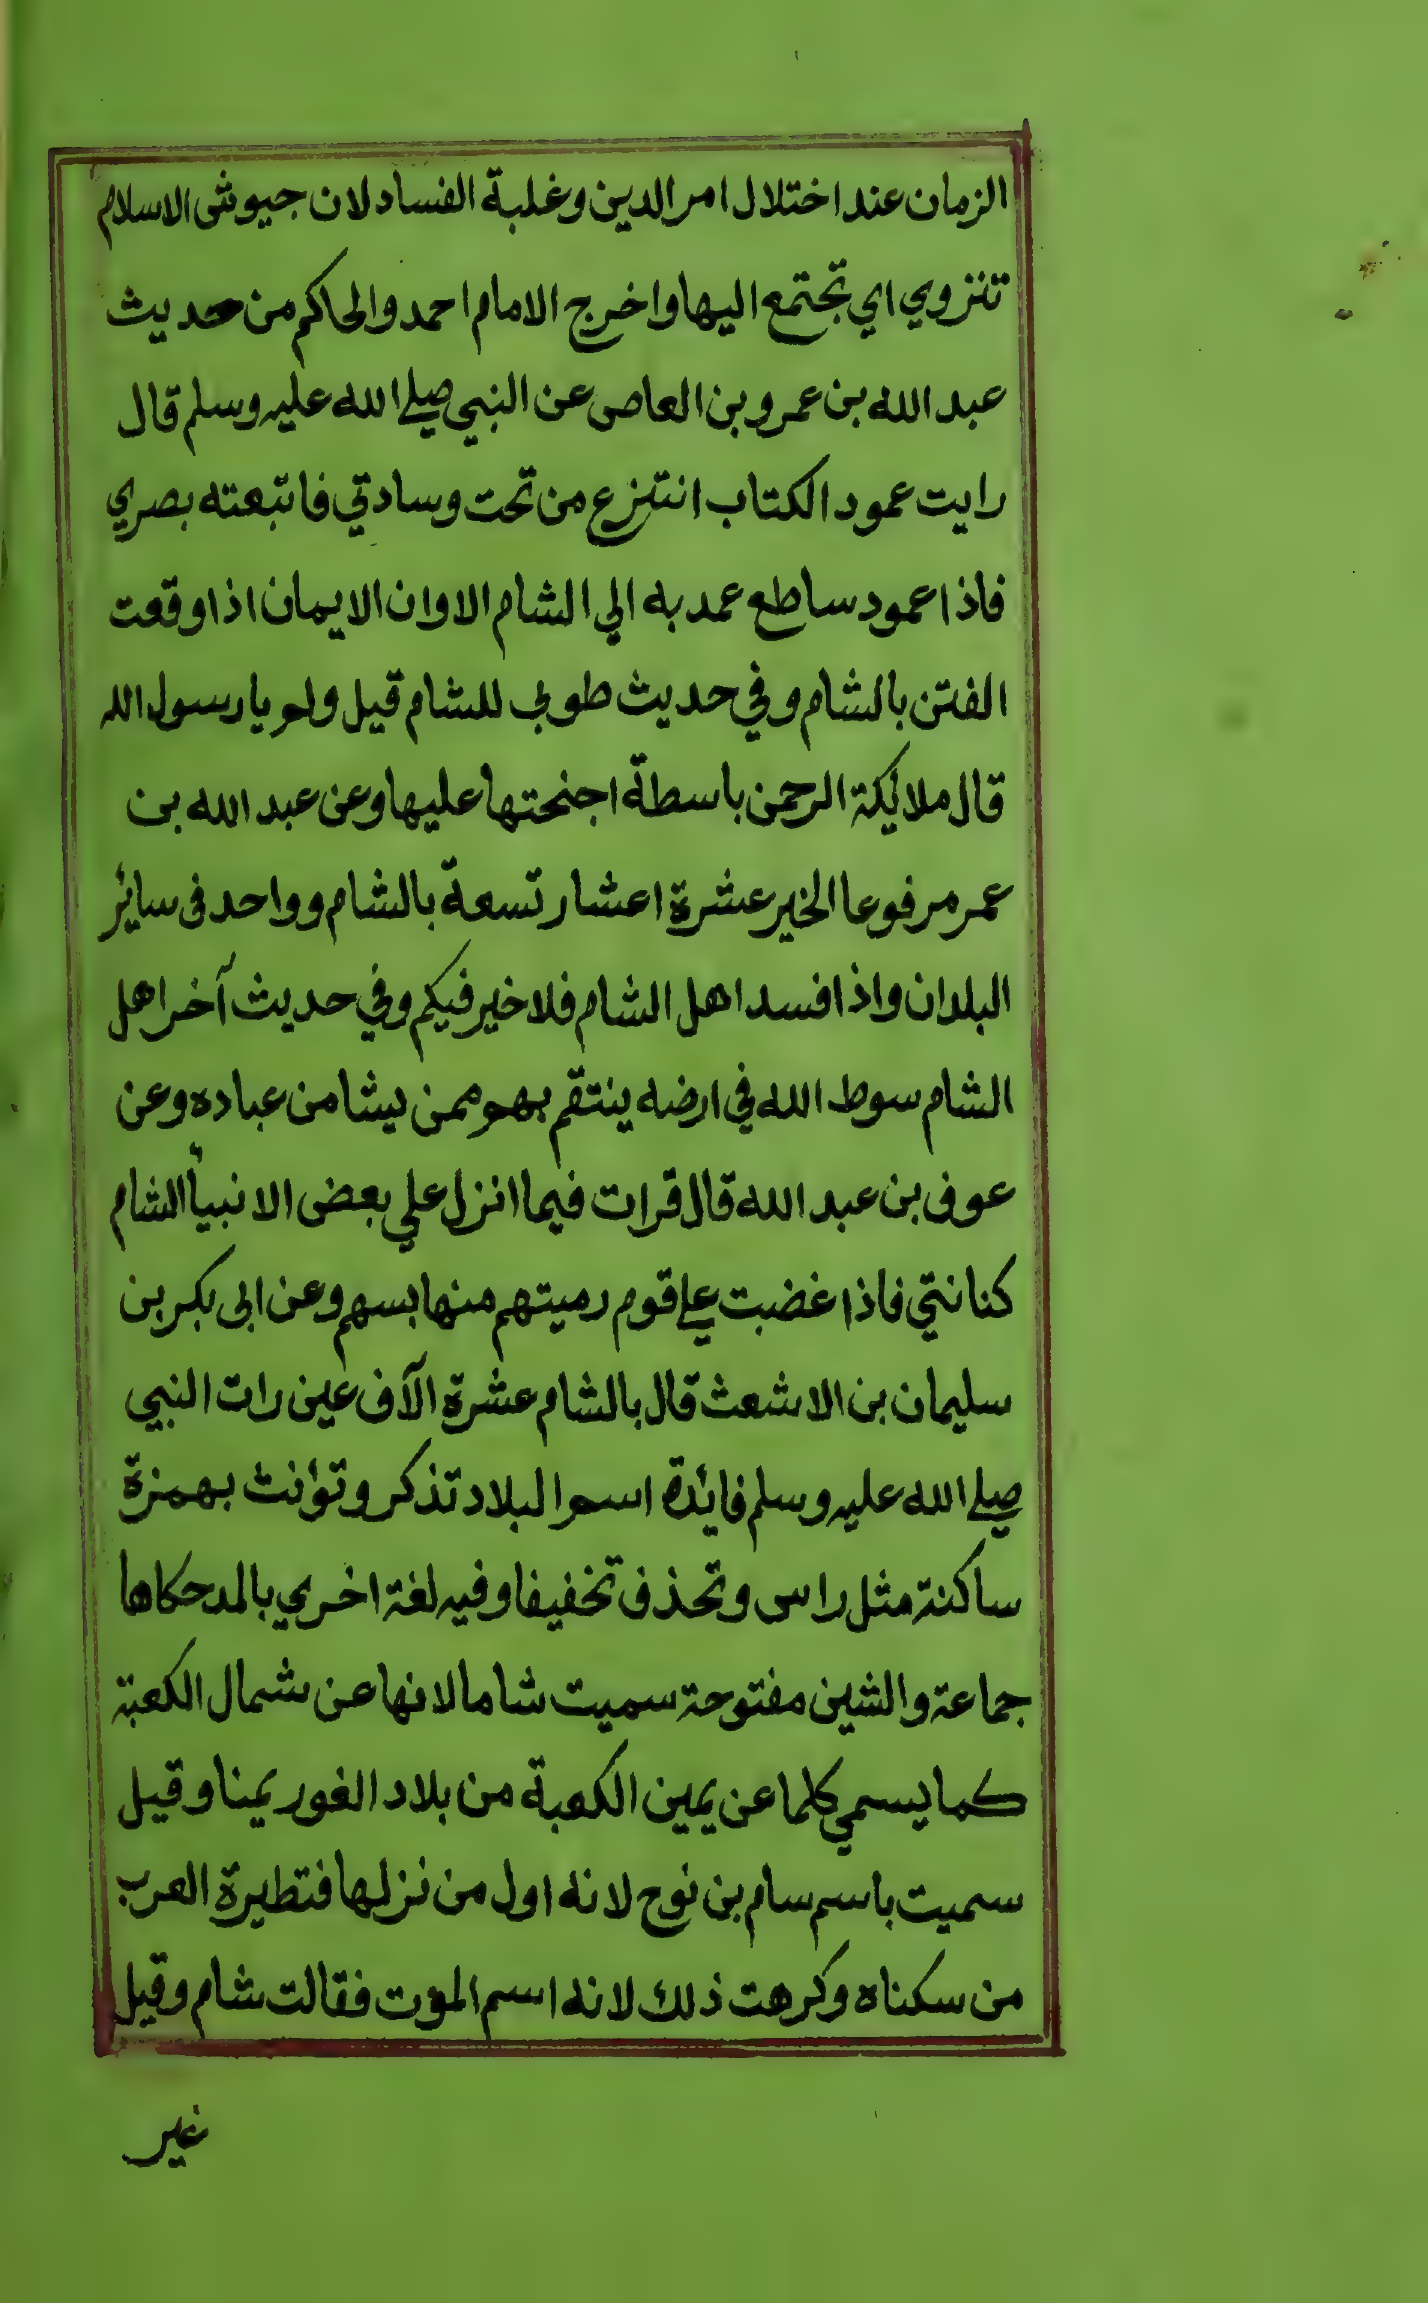 الزمان عند اختلال امر الدين وغلبة الفساد لان جيوش الاسلام
تنزوي اي تجتمع اليها واخرج الامام احمد والحاكم من حديث
عبد الله بن عمرو بن العاص عن النبي صلي الله عليه وسلم قال
رايت عمود الكتاب انتزع من تحت وسادتي فاتبعته بصري
فاذا عمود ساطع عمد به الي الشام الا وان الايمان اذا وقعت
الفتن بالشام وفي حديث طوبي للشام قيل ولم يا رسول الله
قال ملائكة الرحمن باسطة اجنحتها عليها وعن عبد الله بن
عمر مرفوعا الخير عشرة اعشار تسعة بالشام وواحد في سائر
البلدان واذا فسد اهل الشام فلا خير فيكم وفي حديث آخر اهل
الشام سوط الله في ارضه ينتقم بهم ممن يشا من عباده وعن
عوف بن عبد الله قال قرات فيما انزل علي بعض الانبيأ الشام
كنانتي فاذا غضبت علي قوم رميتهم منها بسهم وعن ابي بكر بن
سليمان بن الاشعث قال بالشام عشرة الآف عين رات النبي
صلي الله عليه وسلم فائدة اسم البلاد تذكر وتؤنث بهمزة
ساكنة مثل راس وتحذف تخفيفا وفيه لغة اخري بالمد حكاها
جماعة والشين مفتوحة سميت شاما لانها عن شمال الكعبة
كما يسمي كلما عن يمين الكعبة من بلاد الغور يمنا وقيل
سميت باسم سام بن نوح لانه اول من نزلها فتطيرة العرب
من سكناه وكرهت ذلك لانه اسم الموت فقالت شام وقيل
غير